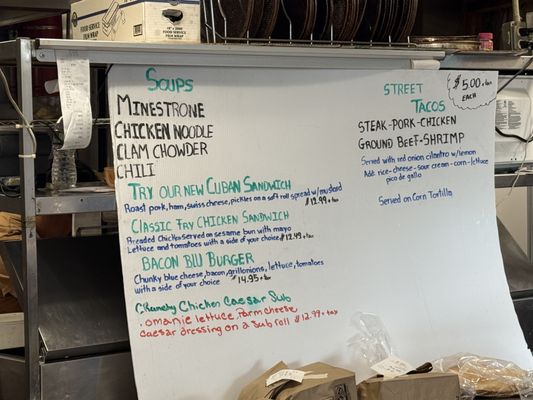 SOUPS
MINESTRONE
CHICKEN NOODLE
CLAM CHOWDER
CHILI
TRY OUR NEW CUBAN SANDWICH
Roast pork, ham, swiss cheese, pickles on a soft roll spread w/mustard
$12.99 + tax
CLASSIC FRY CHICKEN SANDWICH
Breaded Chicken served on sesame bun with mayo
Lettuce and tomatoes with a side of your choice $12.49 + tax
BACON BLU BURGER
Chunky blue cheese, bacon, grill onions, lettuce, tomatoes
with a side of your choice $14.95 + tax
Crunchy Chicken Caesar Sub
. omanie lettuce, Parm cheese
caesar dressing on a sub roll $12.99 + tax
STREET
TACOS
$5.00 + tax
EACH
STEAK-PORK-CHICKEN
GROUND BEEF-SHRIMP
Served with red onion cilantro w/lemon
Add: rice-cheese-sour cream-corn-lettuce
pico de gallo
Served on Corn Tortilla